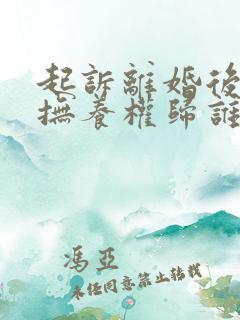 起訴離婚後
撫養權歸誰
馮亞
未經同意禁止轉載